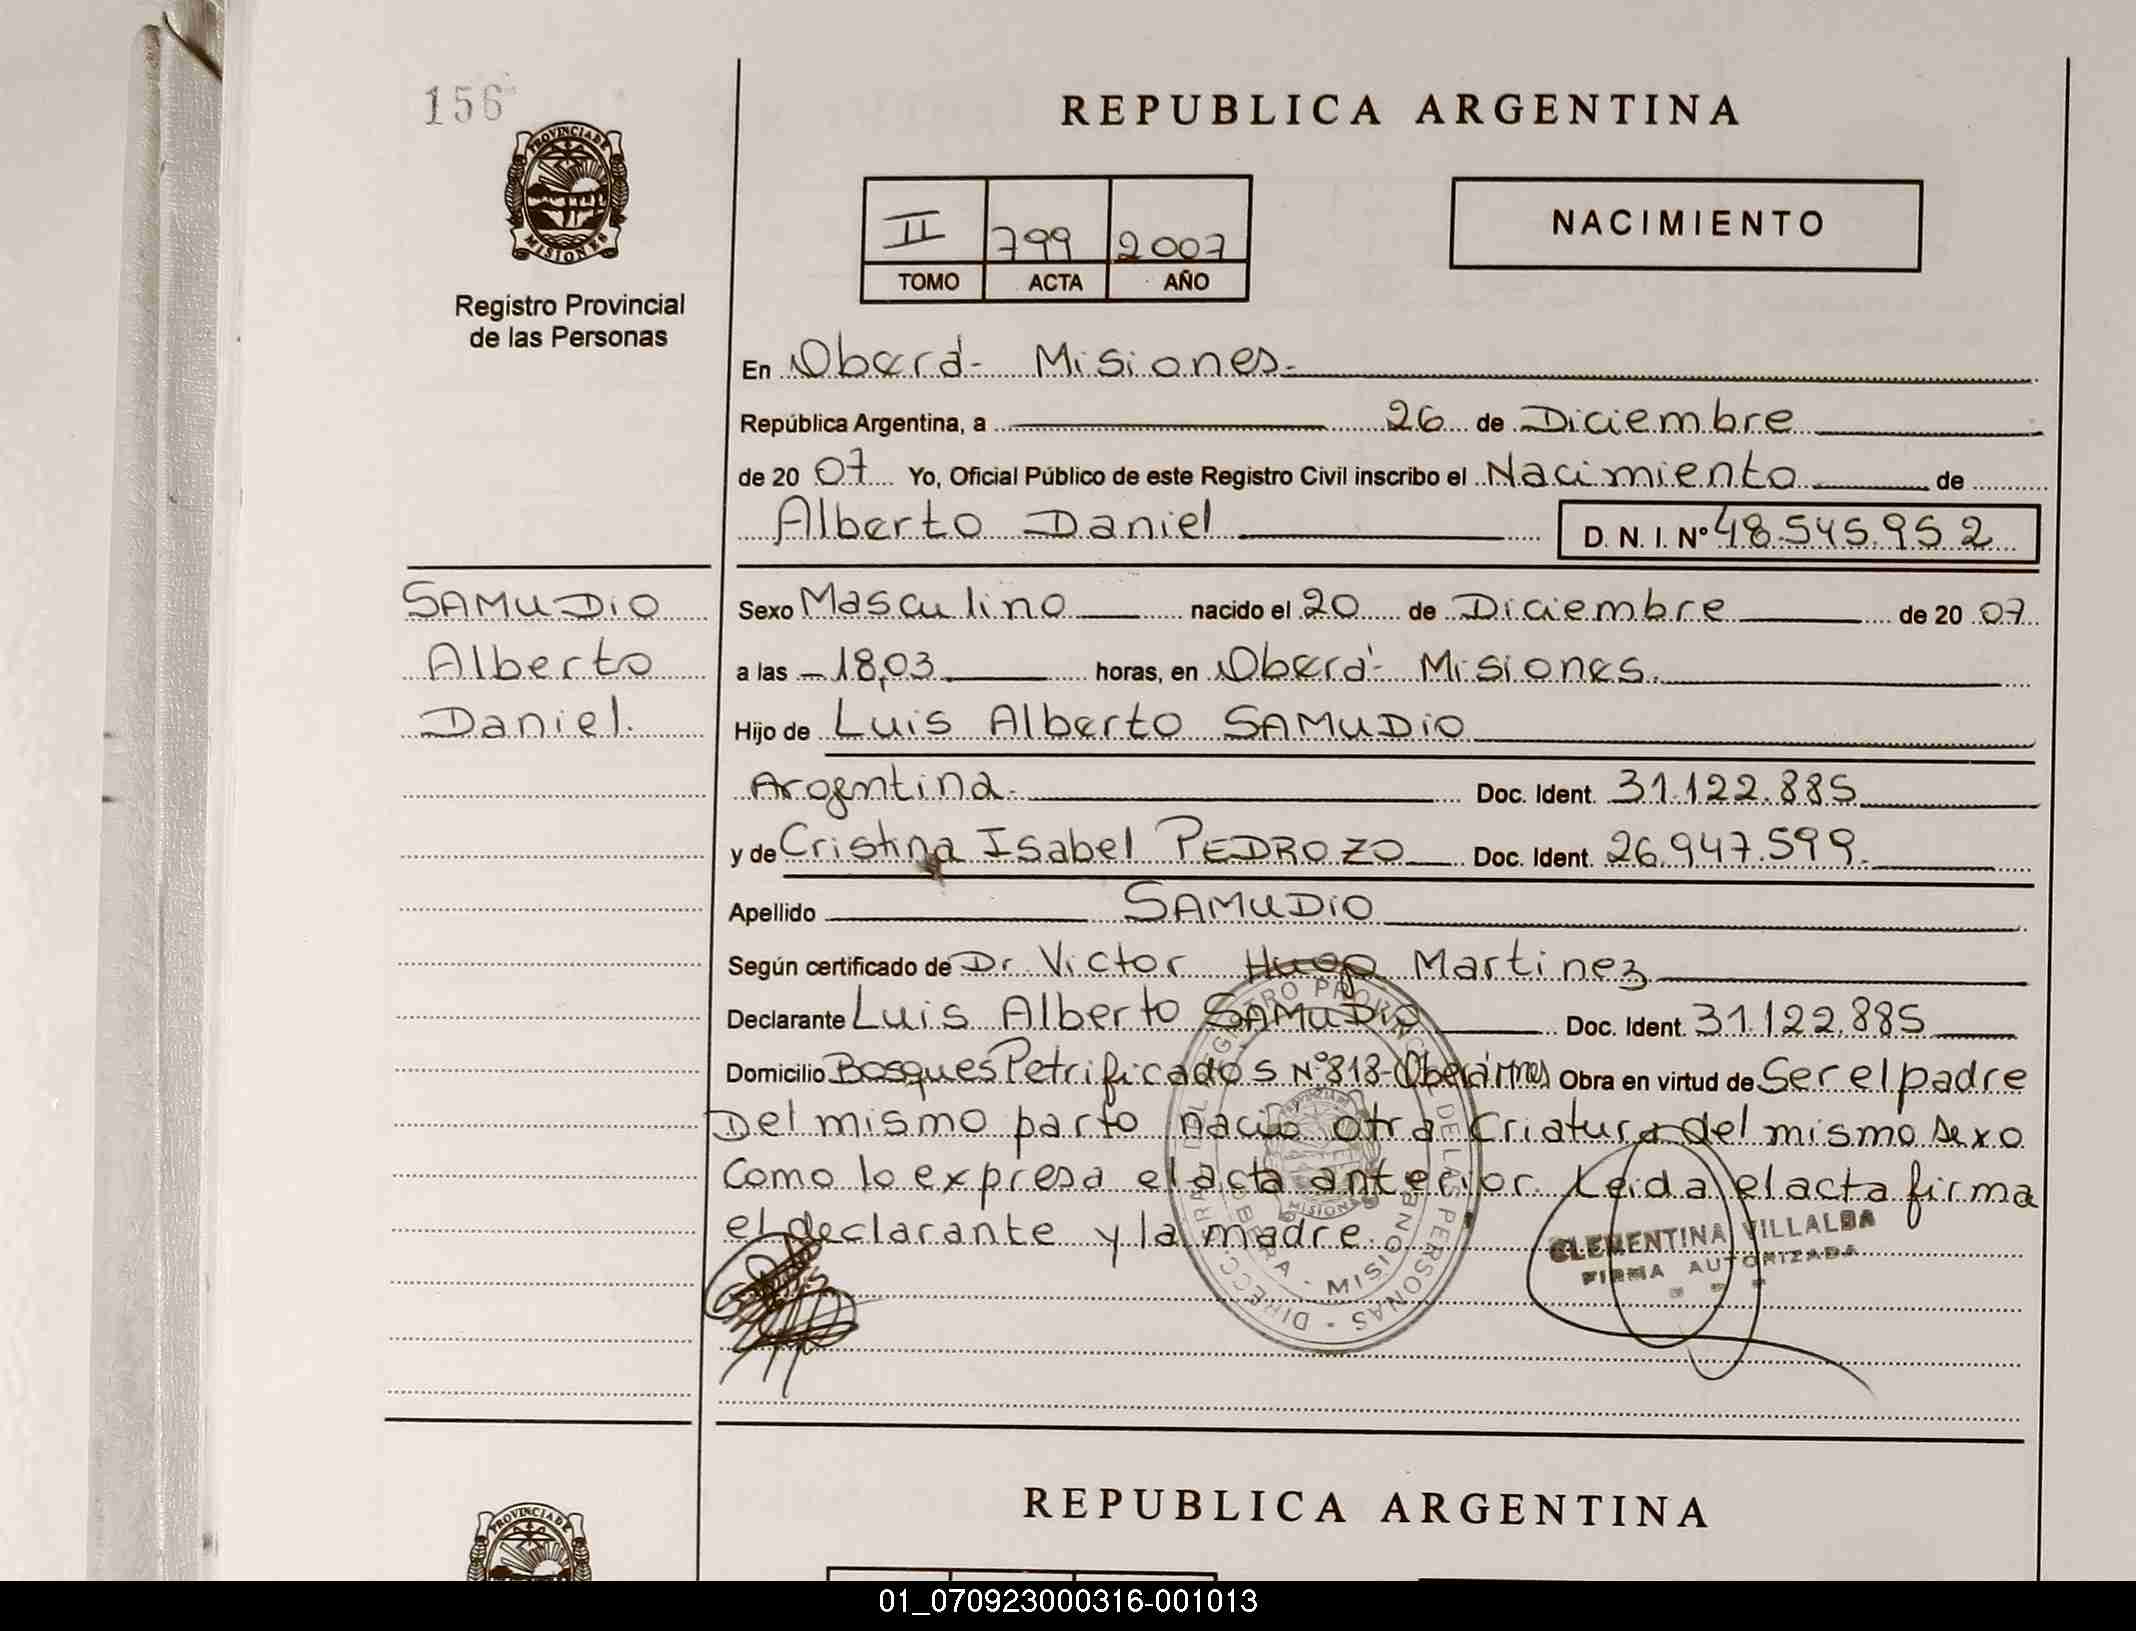 156
PROVINCIA DE
MISIONES
Registro Provincial
de las Personas
REPUBLICA ARGENTINA
II 799 2007
TOMO ACTA AÑO
NACIMIENTO
En Oberá- Misiones.-
República Argentina, a 26 de Diciembre
de 20 07 Yo, Oficial Público de este Registro Civil inscribo el Nacimiento de
Alberto Daniel D. N. I. Nº 48.545.952
SAMUDIO
Alberto
Daniel.
Sexo Masculino nacido el 20 de Diciembre de 20 07
a las -18,03 horas, en Oberá- Misiones.
Hijo de Luis Alberto SAMUDIO
Argentina.- Doc. Ident. 31.122.885
y de Cristina Isabel PEDROZO Doc. Ident. 26.947.599.
Apellido SAMUDIO
Según certificado de Dr. Victor Hugo Martinez
Declarante Luis Alberto SAMUDIO Doc. Ident. 31.122.885
Domicilio Bosques Petrificados Nº 818-Oberá Mnes Obra en virtud de Ser el padre
Del mismo parto nació otra Criatura del mismo sexo
Como lo expresa el acta anterior. Leida el acta firma
el declarante y la madre.
REGISTRO PROVINCIAL DE LAS PERSONAS
OBERA - MISIONES
CLEMENTINA VILLALBA
FIRMA AUTORIZADA
REPUBLICA ARGENTINA
PROVINCIA DE
01_070923000316-001013